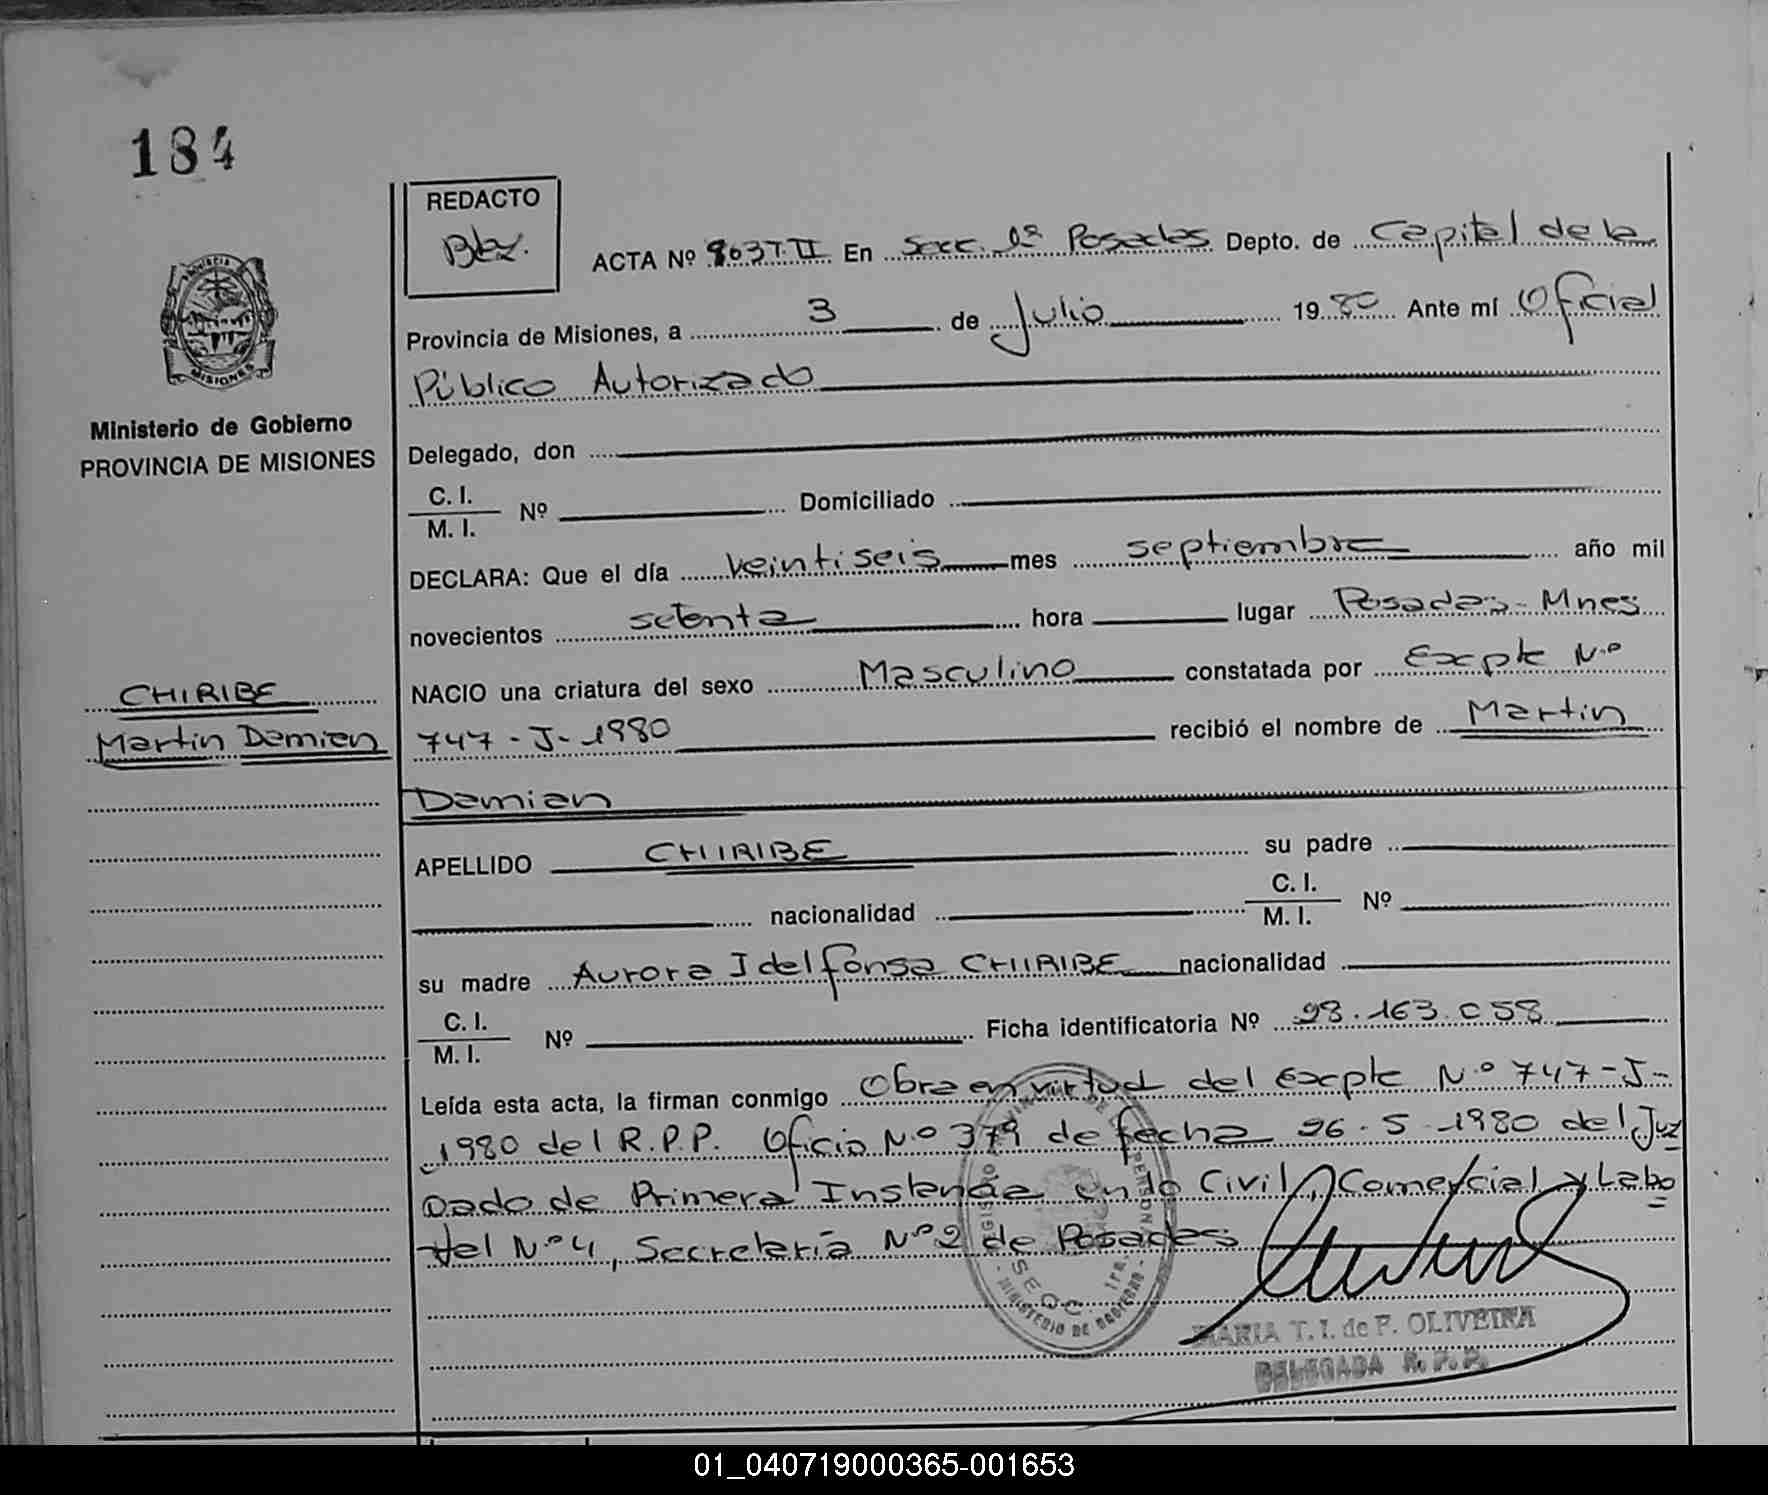 184
REDACTO
Bez.
ACTA Nº 903 T. II En Secc. 1ª Posadas Depto. de Capital de la
Provincia de Misiones, a 3 de Julio 1980 Ante mí Oficial
Público Autorizado
Ministerio de Gobierno
PROVINCIA DE MISIONES
Delegado, don
C. I.
M. I. Nº Domiciliado
DECLARA: Que el día veintiseis mes septiembre año mil
novecientos setenta hora lugar Posadas - Mnes
NACIO una criatura del sexo Masculino constatada por Expte Nº
CHIRIBE
Martin Damian
747 - J - 1980 recibió el nombre de Martin
Damian
APELLIDO CHIRIBE su padre
nacionalidad C. I.
M. I. Nº
su madre Aurora Idelfonsa CHIRIBE nacionalidad
C. I.
M. I. Nº Ficha identificatoria Nº 28.163.058
Leída esta acta, la firman conmigo Obra en virtud del Expte Nº 747 - J -
1980 del R.P.P. Oficio Nº 379 de fecha 26 - 5 - 1980 del Juz
gado de Primera Instancia en lo Civil, Comercial y Labo
ral Nº 4, Secretaría Nº 2 de Posadas
MINISTERIO DE GOBIERNO
SECC. 1ra.
MARIA T. I. de F. OLIVEIRA
DELEGADA R. P. P.
01_040719000365-001653